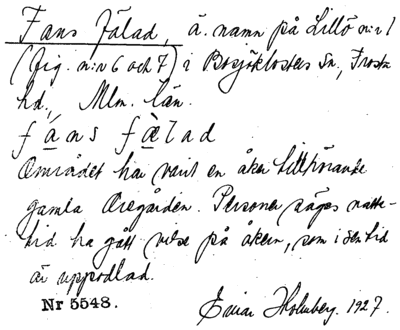 Fans Fälad, ä. namn på Lillö n:r 1
(fig. n:r 6 och 7) i Bosjöklosters Sn., Frosta
hd., Mlm. län.
fáns fæ̀lad
Området har varit en åker tillhörande
gamla Öregården. Personer säges natte-
tid ha gått vilse på åkern, som i sen tid
är uppodlad.
Nr 5548.
Einar Holmberg. 1927.